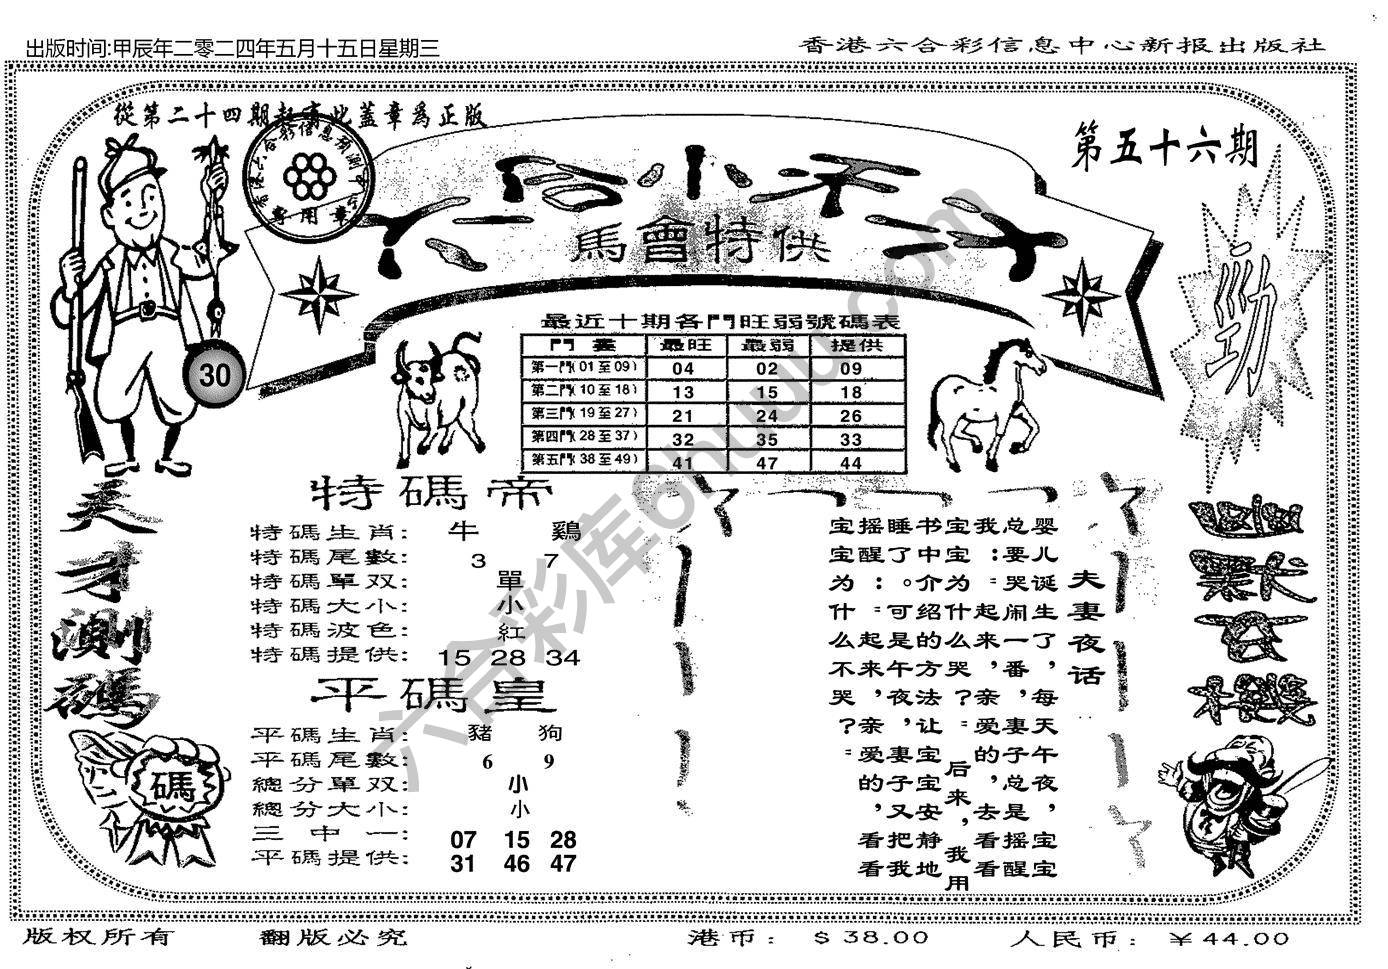 出版时间:甲辰年二零二四年五月十五日星期三
香港六合彩信息中心新报出版社
從第二十四期起東此蓋章為正版
第五十六期
六合小天才
馬會特供
勁
30
最近十期各門旺弱號碼表
門 最旺 最弱 提供
第一門(01至09) 04 02 09
第二門(10至18) 13 15 18
第三門(19至27) 21 24 26
第四門(28至37) 32 35 33
第五門(38至49) 41 47 44
天才測碼
碼
特碼帝
特碼生肖: 牛 鷄
特碼尾數: 3 7
特碼單双: 單
特碼大小: 小
特碼波色: 紅
特碼提供: 15 28 34
平碼皇
平碼生肖: 豬 狗
平碼尾數: 6 9
總分單双: 小
總分大小: 小
三中一: 07 15 28
平碼提供: 31 46 47
夫妻夜话
婴儿诞生了,每天午夜,宝宝
总要哭闹一番,妻子总是摇醒
我:“起来,亲爱的,去看看
宝宝为什么哭?”后来,我用
书中介绍的方法让宝宝安静地
睡了。可是午夜,妻子又把我
摇醒:“起来,亲爱的,看看
宝宝为什么不哭?”
六合彩库6huuu.com
版权所有 翻版必究 港币: $38.00 人民币: ¥44.00